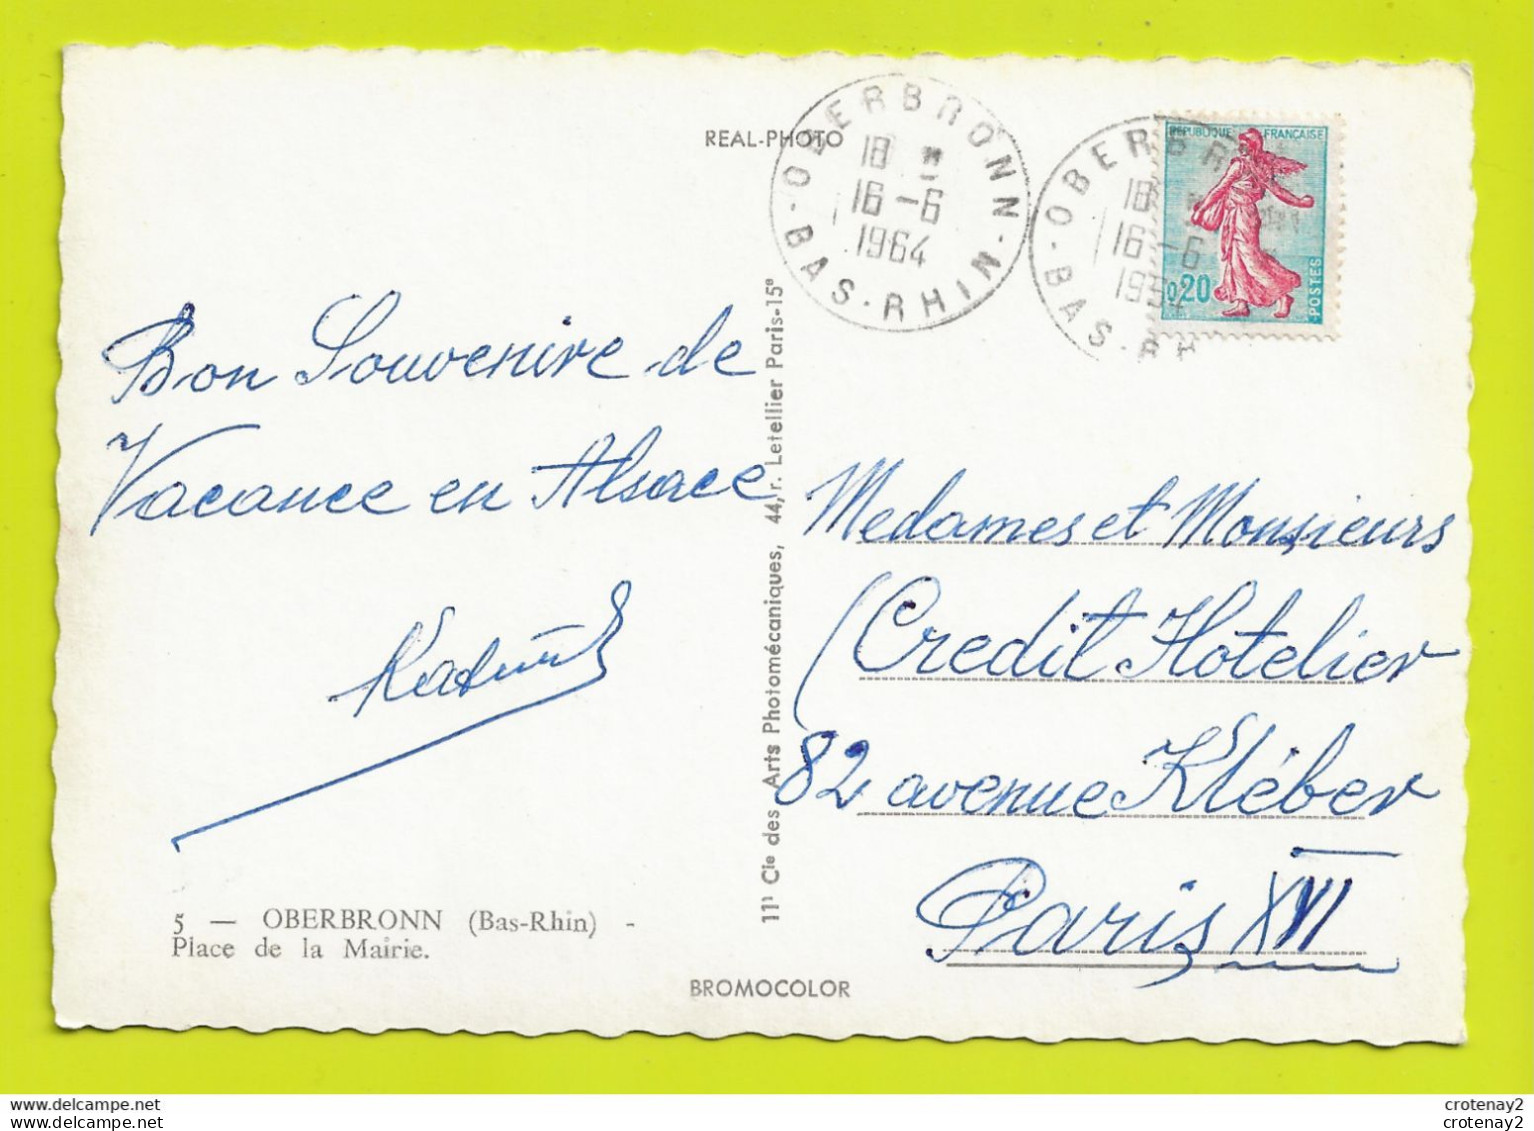 REAL-PHOTO
OBERBRONN
18 H
16-6
1964
BAS-RHIN
OBERBR
18
16-6
195
BAS-RH
REPUBLIQUE FRANÇAISE
0,20
POSTES
Bon Souvenire de
Vacance en Alsace
Medames et Monsieurs
(Credit Hotelier
82 avenue Kléber
Paris XVI
11¹ Cie des Arts Photomécaniques, 44, r. Letellier Paris-15e
5 — OBERBRONN (Bas-Rhin) -
Place de la Mairie.
BROMOCOLOR
crotenay2
crotenay2
crotenay2
crotenay2